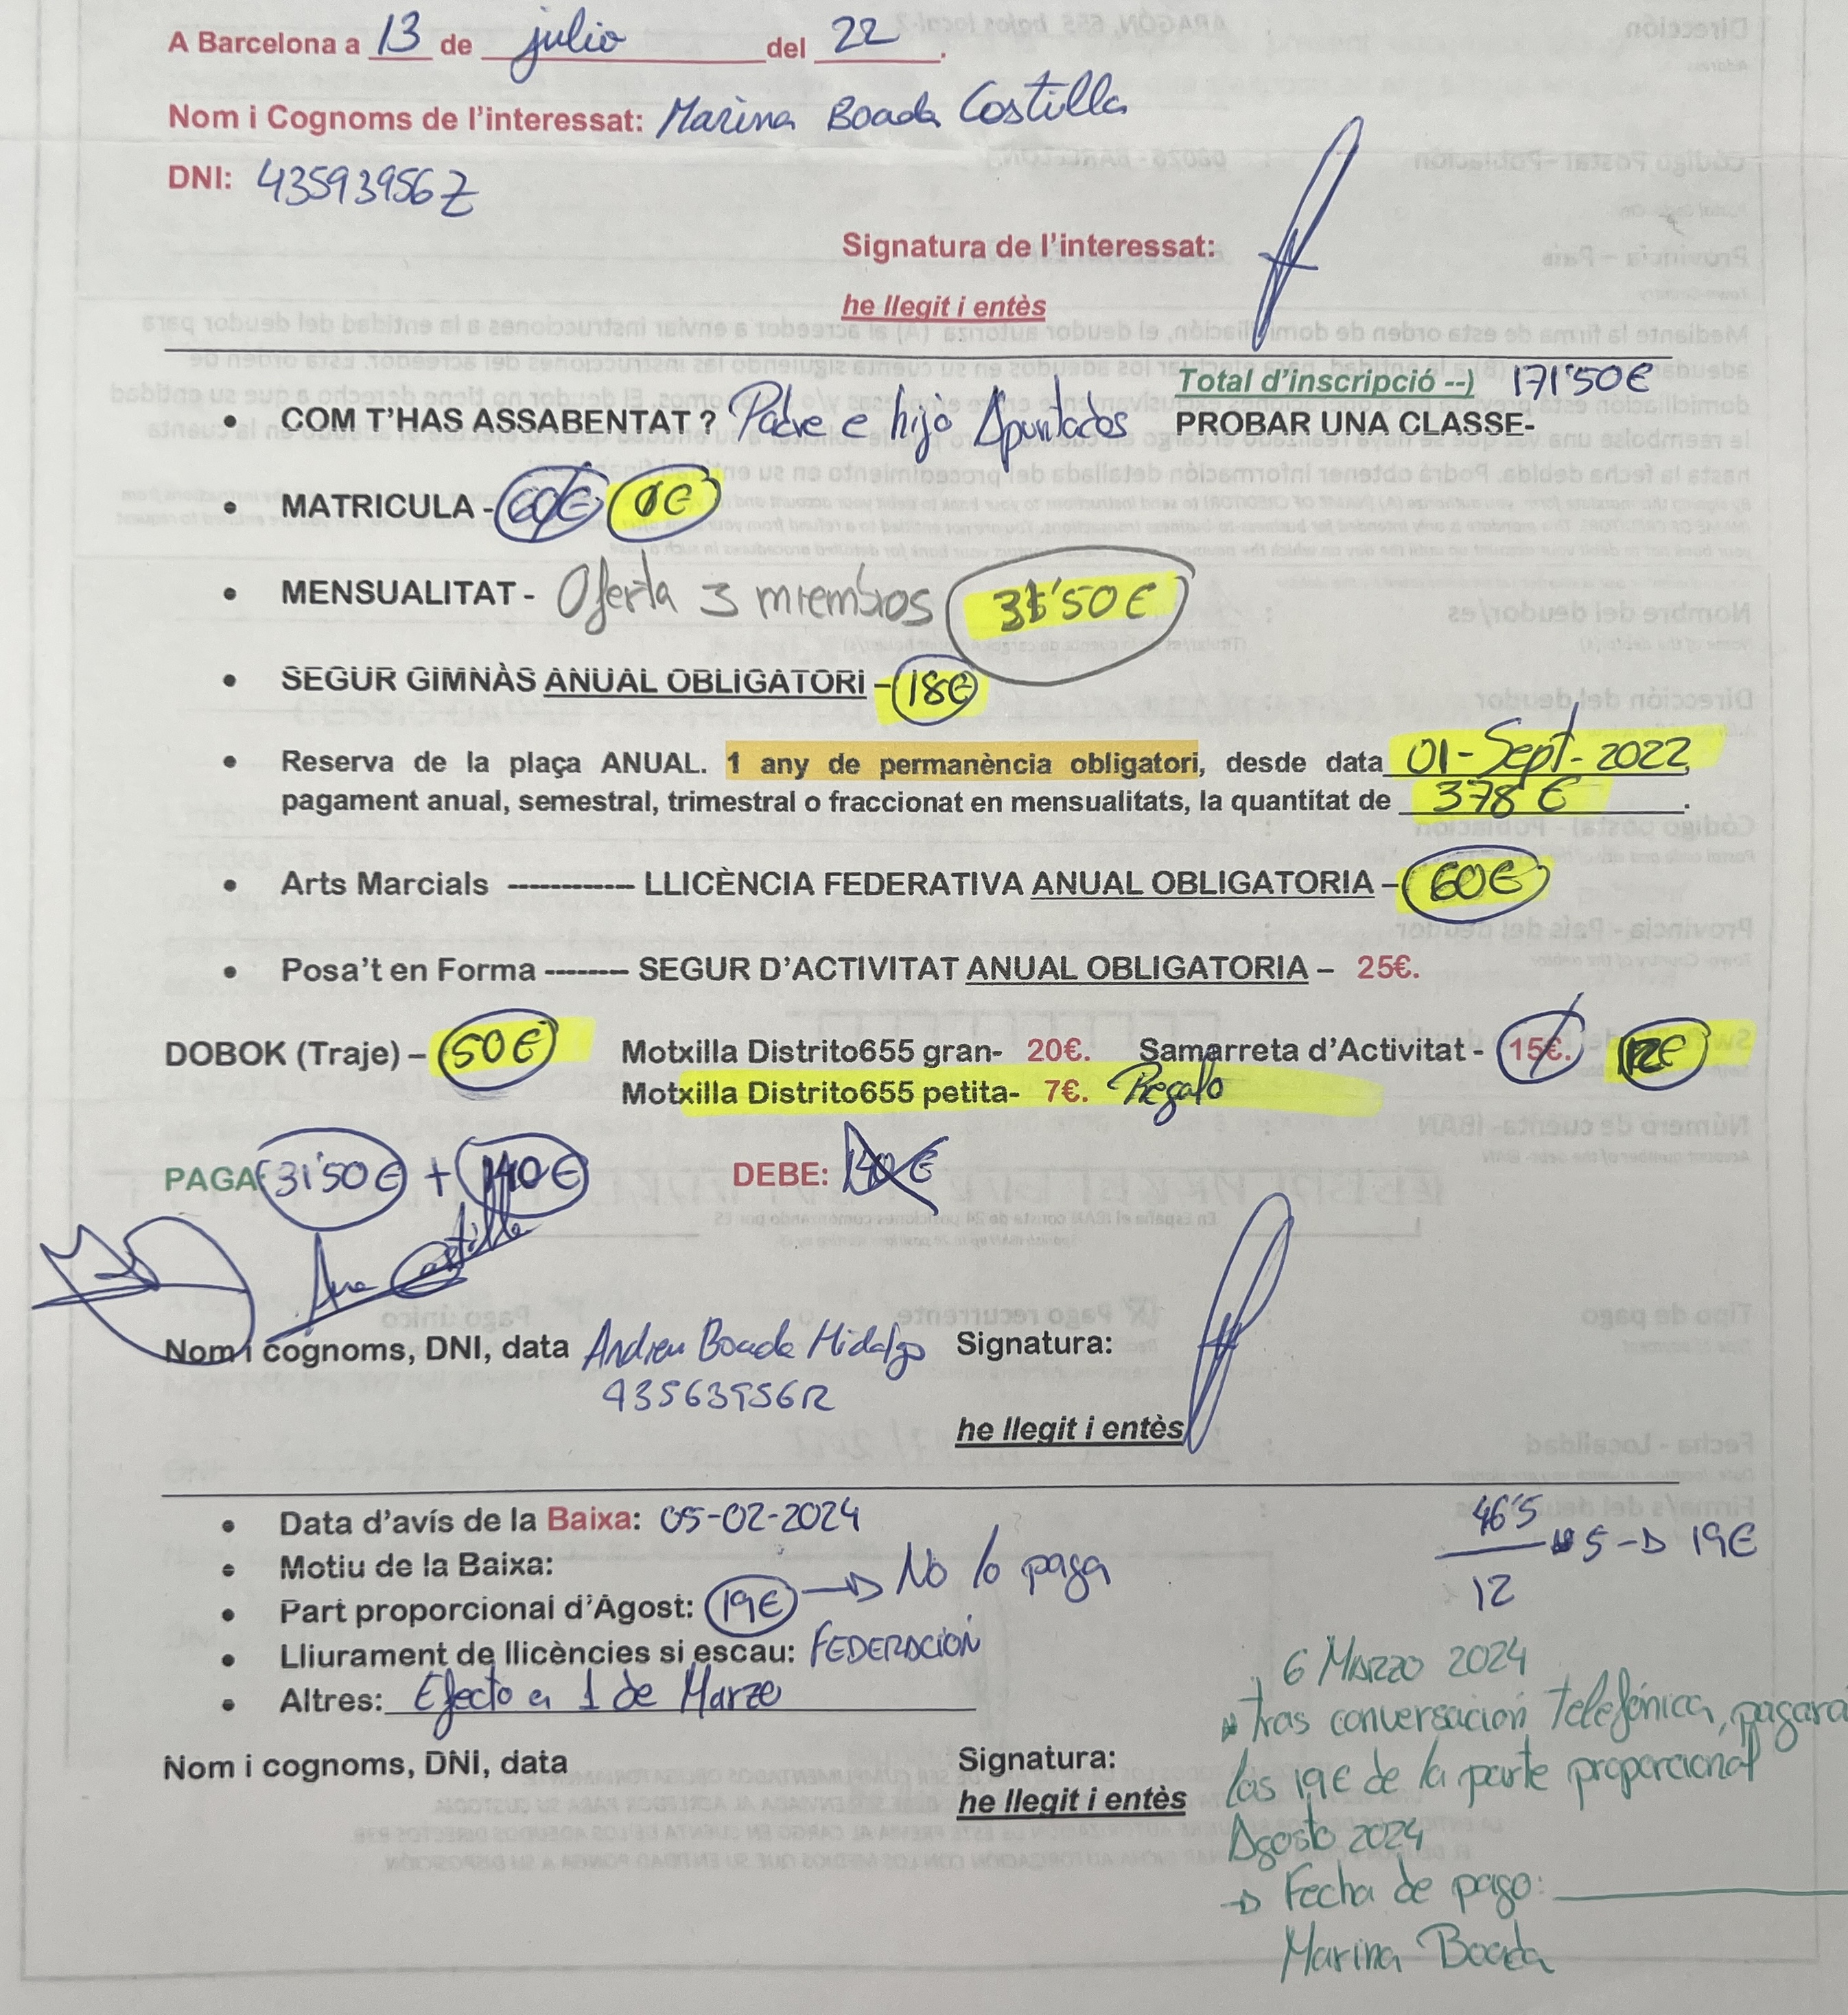 A Barcelona a 13 de julio del 22.
Nom i Cognoms de l'interessat: Marina Boada Costilla
DNI: 43593956Z
Signatura de l'interessat:
he llegit i entès
Total d'inscripció --) 171'50€
• COM T'HAS ASSABENTAT ? Padre e hijo Apuntados PROBAR UNA CLASSE-
• MATRICULA - 60€ 0€
• MENSUALITAT - Oferta 3 miembros 31'50€
• SEGUR GIMNÀS ANUAL OBLIGATORI – 18€
• Reserva de la plaça ANUAL. 1 any de permanència obligatori, desde data 01-Sept-2022,
pagament anual, semestral, trimestral o fraccionat en mensualitats, la quantitat de 378€.
• Arts Marcials ------------ LLICÈNCIA FEDERATIVA ANUAL OBLIGATORIA – 60€
• Posa't en Forma -------- SEGUR D'ACTIVITAT ANUAL OBLIGATORIA – 25€.
DOBOK (Traje) – 50€ Motxilla Distrito655 gran- 20€. Samarreta d'Activitat - 15€. 12€
Motxilla Distrito655 petita- 7€. Regalo
PAGA: 31'50€ + 140€ DEBE: 140€
Ana Castilla
Nom i cognoms, DNI, data Andreu Boada Hidalgo Signatura:
43563956R
he llegit i entès
• Data d'avís de la Baixa: 05-02-2024
• Motiu de la Baixa:
• Part proporcional d'Agost: 19€ → No lo paga
46'5
12
5 → 19€
• Lliurament de llicències si escau: FEDERACIÓN
• Altres: Efecto a 1 de Marzo
Nom i cognoms, DNI, data Signatura:
he llegit i entès
6 Marzo 2024
tras conversación telefónica, pagará
los 19€ de la parte proporcional
Agosto 2024
→ Fecha de pago:
Marina Boada